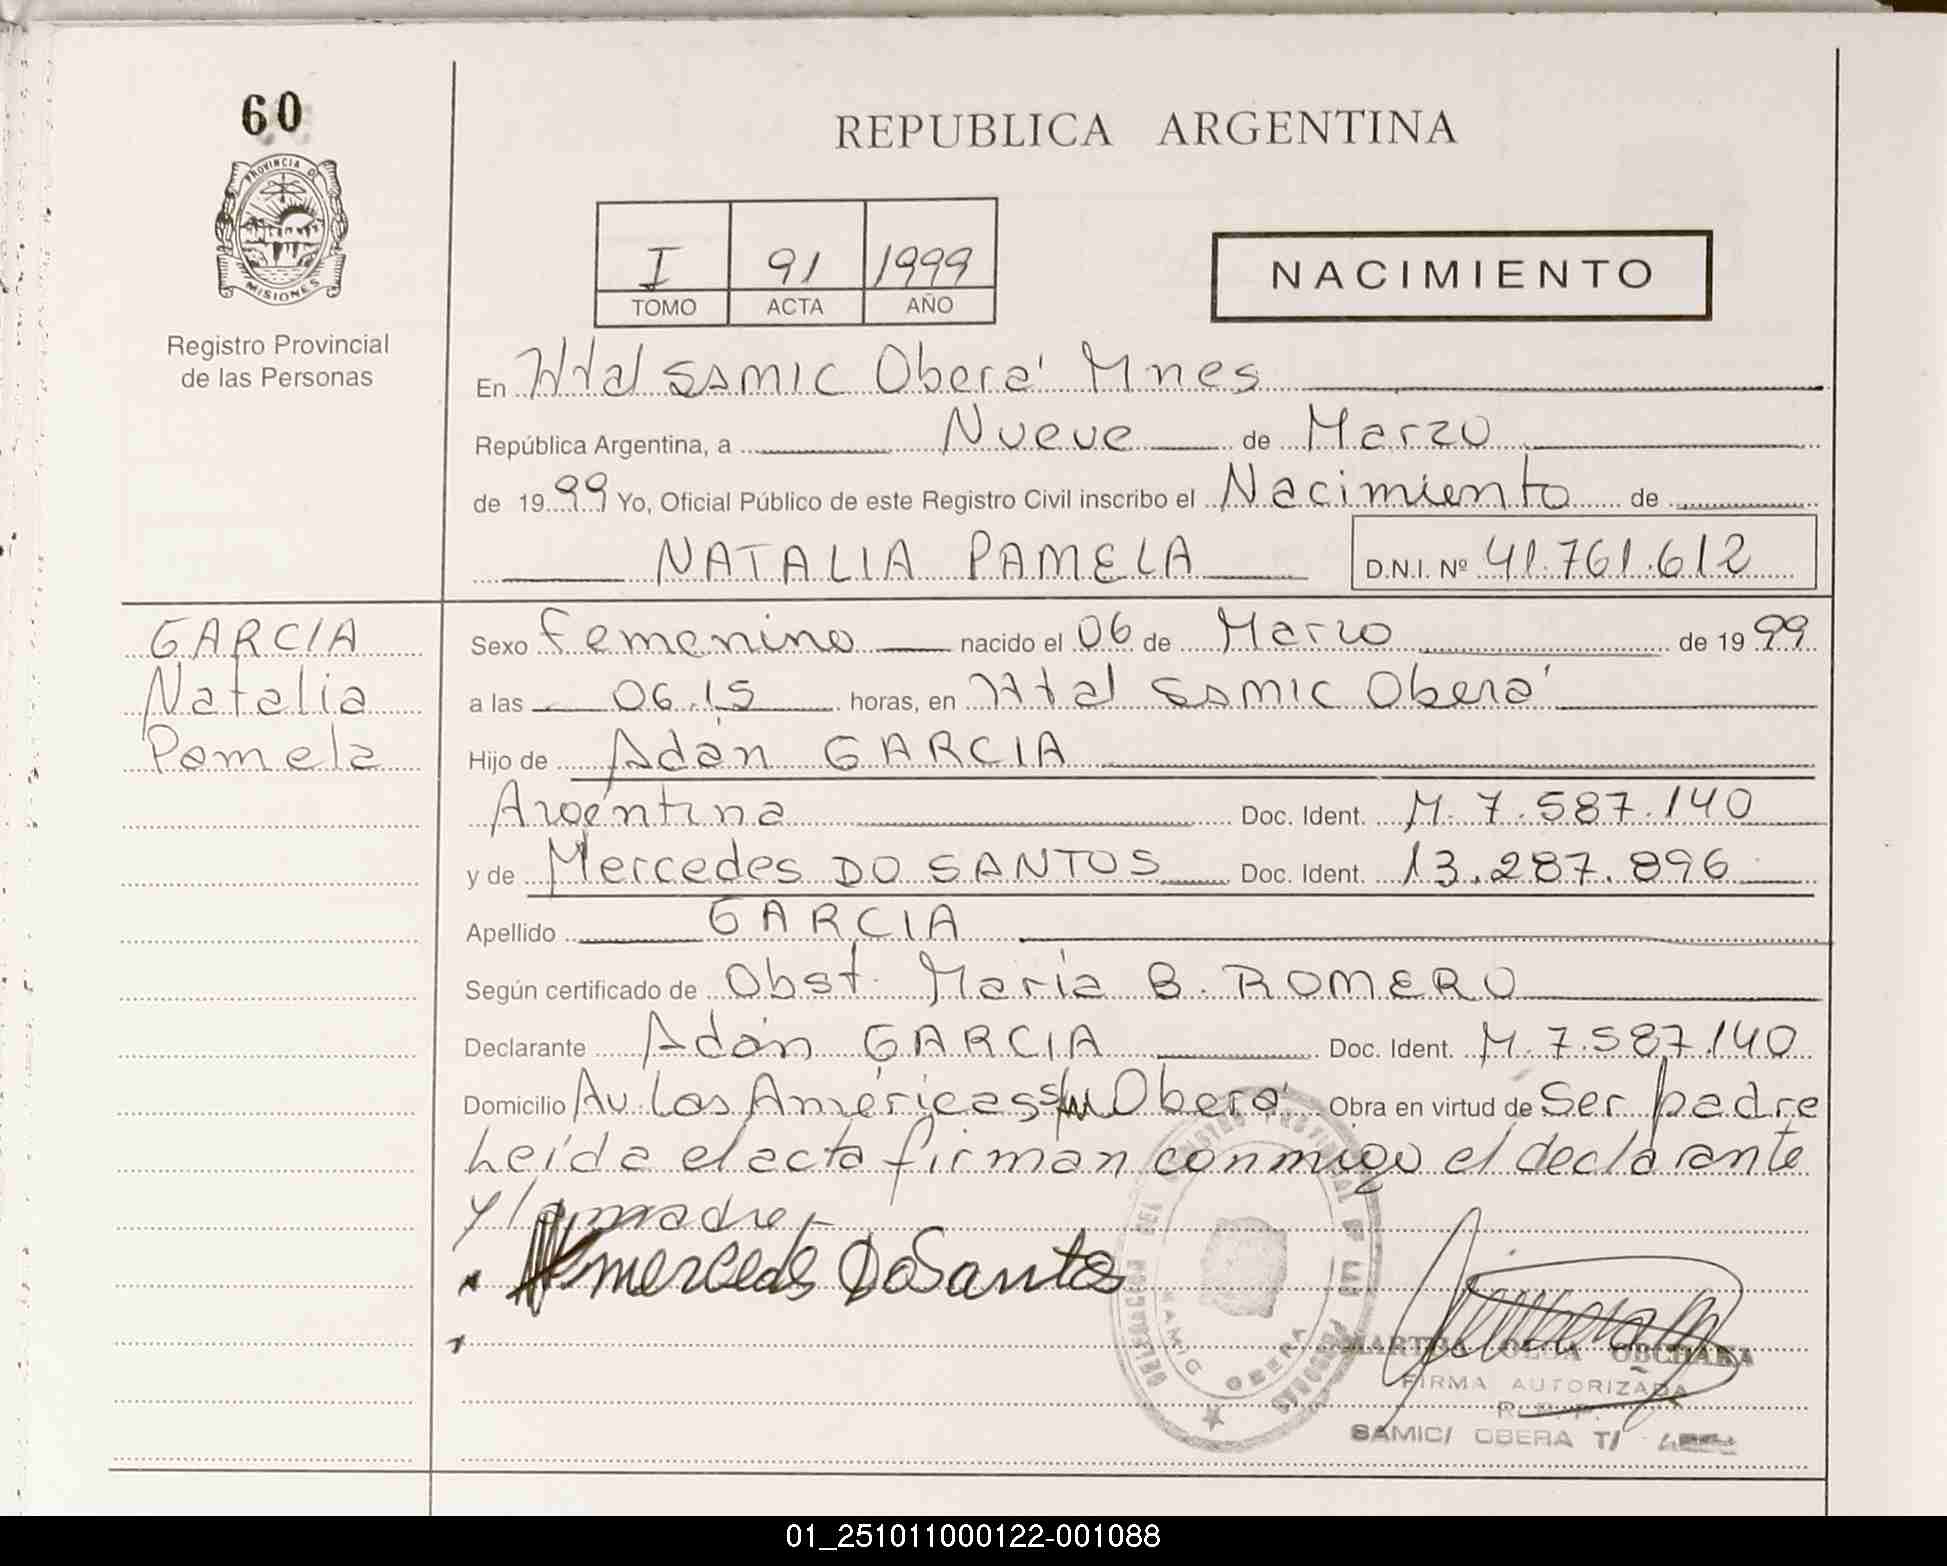 60
PROVINCIA D
MISIONES
Registro Provincial
de las Personas
REPUBLICA ARGENTINA
I 91 1999
TOMO ACTA AÑO
NACIMIENTO
En Htal SAMIC Oberá Mnes
República Argentina, a Nueve de Marzo
de 1999 Yo, Oficial Público de este Registro Civil inscribo el Nacimiento de
NATALIA PAMELA D.N.I. Nº 41.761.612
GARCIA
Natalia
Pamela
Sexo Femenino nacido el 06 de Marzo de 1999
a las 06.15 horas, en Htal SAMIC Oberá
Hijo de Adán GARCIA
Argentina Doc. Ident. M. 7.587.140
y de Mercedes DO SANTOS Doc. Ident. 13.287.896
Apellido GARCIA
Según certificado de Obst. María B. ROMERO
Declarante Adán GARCIA Doc. Ident. M. 7.587.140
Domicilio Av. Las Américas s/n Oberá Obra en virtud de Ser padre
Leída el acta firman conmigo el declarante
y la madre.-
mercedes DoSantos
SAMIC OBERA
MARTHA OLGA
FIRMA AUTORIZADA
R. P. P.
SAMIC/ OBERA T/
01_251011000122-001088